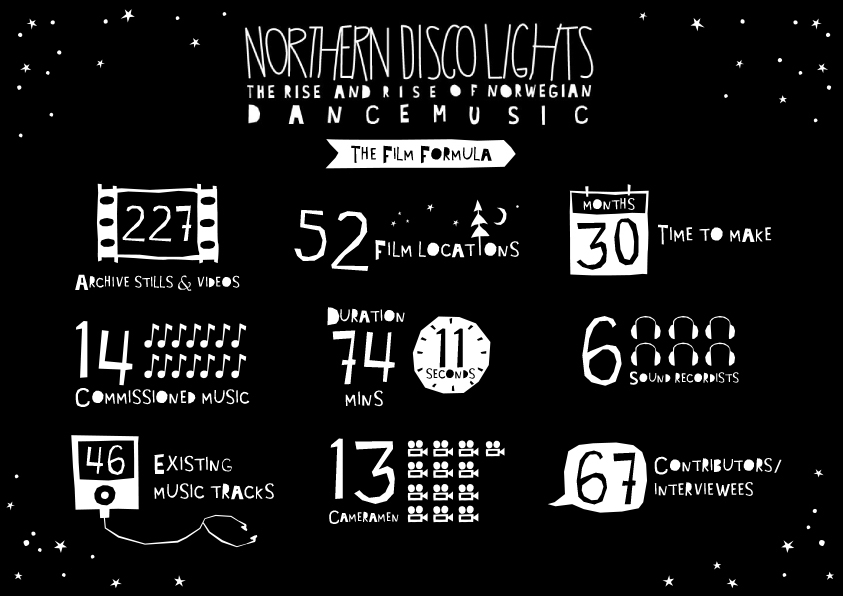 NORTHERN DISCO LIGHTS
THE RISE AND RISE OF NORWEGIAN
DANCE MUSIC
THE FILM FORMULA
227
ARCHIVE STILLS & VIDEOS
52
FILM LOCATIONS
MONTHS
30
TIME TO MAKE
14
COMMISSIONED MUSIC
DURATION
74
MINS
11
SECONDS
6
SOUND RECORDISTS
46
EXISTING
MUSIC TRACKS
13
CAMERAMEN
67
CONTRIBUTORS/
INTERVIEWEES